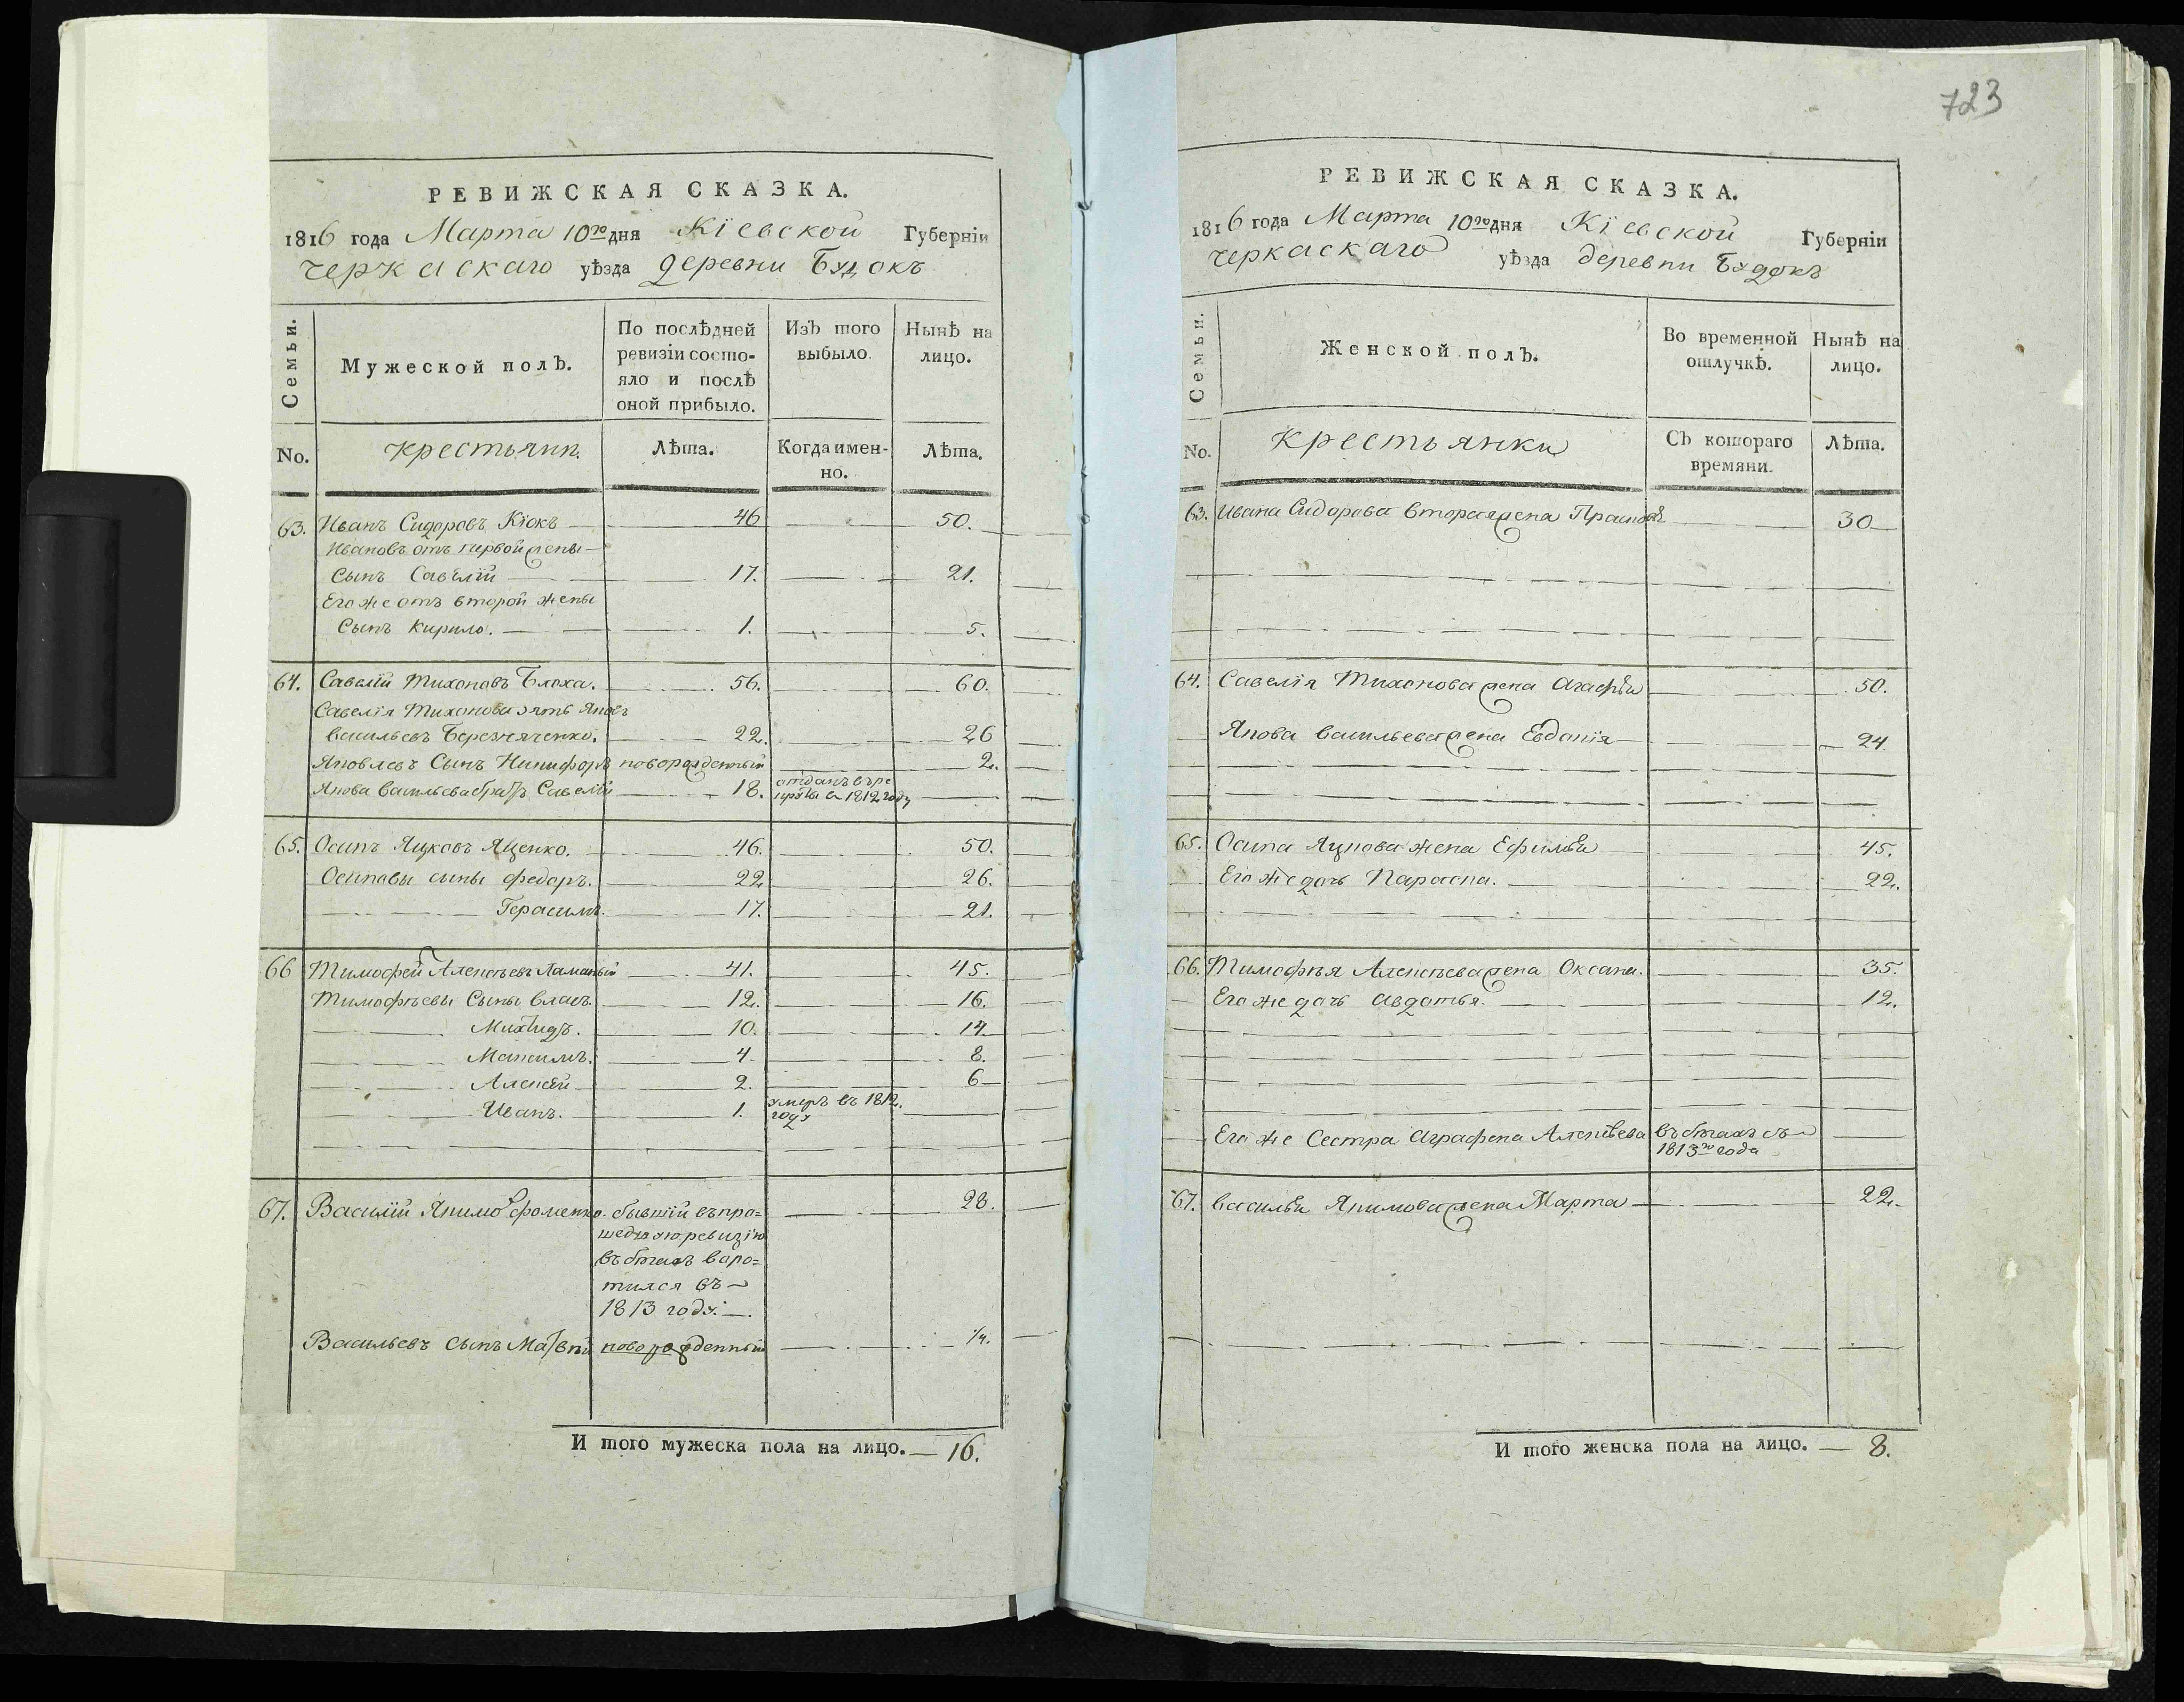 723
РЕВИЖСКАЯ СКАЗКА.
1816 года Марта 10го дня Кіевской Губерніи
Черкаскаго уѣзда деревни Будокъ
Семьи.
Мужеской полъ.
По послѣдней ревизіи состо-
яло и послѣ
оной прибыло.
Изъ того выбыло.
Нынѣ на лицо.
No. крестьяни. Лѣта. Когда имен-
но. Лѣта.
63. Иванъ Сидоровъ Кіокъ 46 50.
Ивановъ отъ первой жены
сынъ Савелій 17. 21.
Его же отъ второй жены
Сынъ Кирило. 1. 5.
64. Савелій Тихоновъ Блоха. 56. 60.
Савелія Тихонова зять Яковъ
Васильевъ Березняченко. 22. 26
Яковлевъ Сынъ Никифоръ новорожденный 2.
Якова Васильева братъ Савелій 18. отданъ въ ре
круты в 1812 году
65. Осипъ Яцковъ Яценко. 46. 50.
Осиповы сыны Федоръ. 22 26.
Герасимъ. 17. 21.
66 Тимофей Алексѣевъ Ламаный 41. 45.
Тимофѣевы Сыны Власъ 12. 16.
Михидъ. 10. 14.
Максимъ. 4. 8.
Алексѣй 2. 6
Иванъ. 1. умеръ въ 1812.
году
67. Василій Якимо Фоменко. бывшій въ про=
шедшую ревизію
въ бѣгахъ воро=
тился въ
1813 году. 28.
Васильевъ сынъ Матвѣй новорожденный 1/4.
И того мужеска пола на лицо. — 16.
РЕВИЖСКАЯ СКАЗКА.
1816 года Марта 10го дня Кіевской Губерніи
Черкаскаго уѣзда деревни Будокъ
Семьи.
Женской полъ.
Во временной отлучкѣ.
Нынѣ на лицо.
No. Крестьянки Съ котораго
времяни. Лѣта.
63. Ивана Сидорова вторая жена Прасковья 30
64. Савелія Тихонова жена Агафья 50.
Якова Васильева жена Евдокія 24
65. Осипа Яцкова жена Ефимья 45.
Его же дочь Параска. 22.
66. Тимофѣя Алексѣева жена Оксана. 35.
Его же дочь Авдотья. 12.
Его же Сестра Аграфена Алексѣева въ бѣгахъ съ
1813го года
67. Василья Якимова жена Марта 22.
И того женска пола на лицо. — 8.